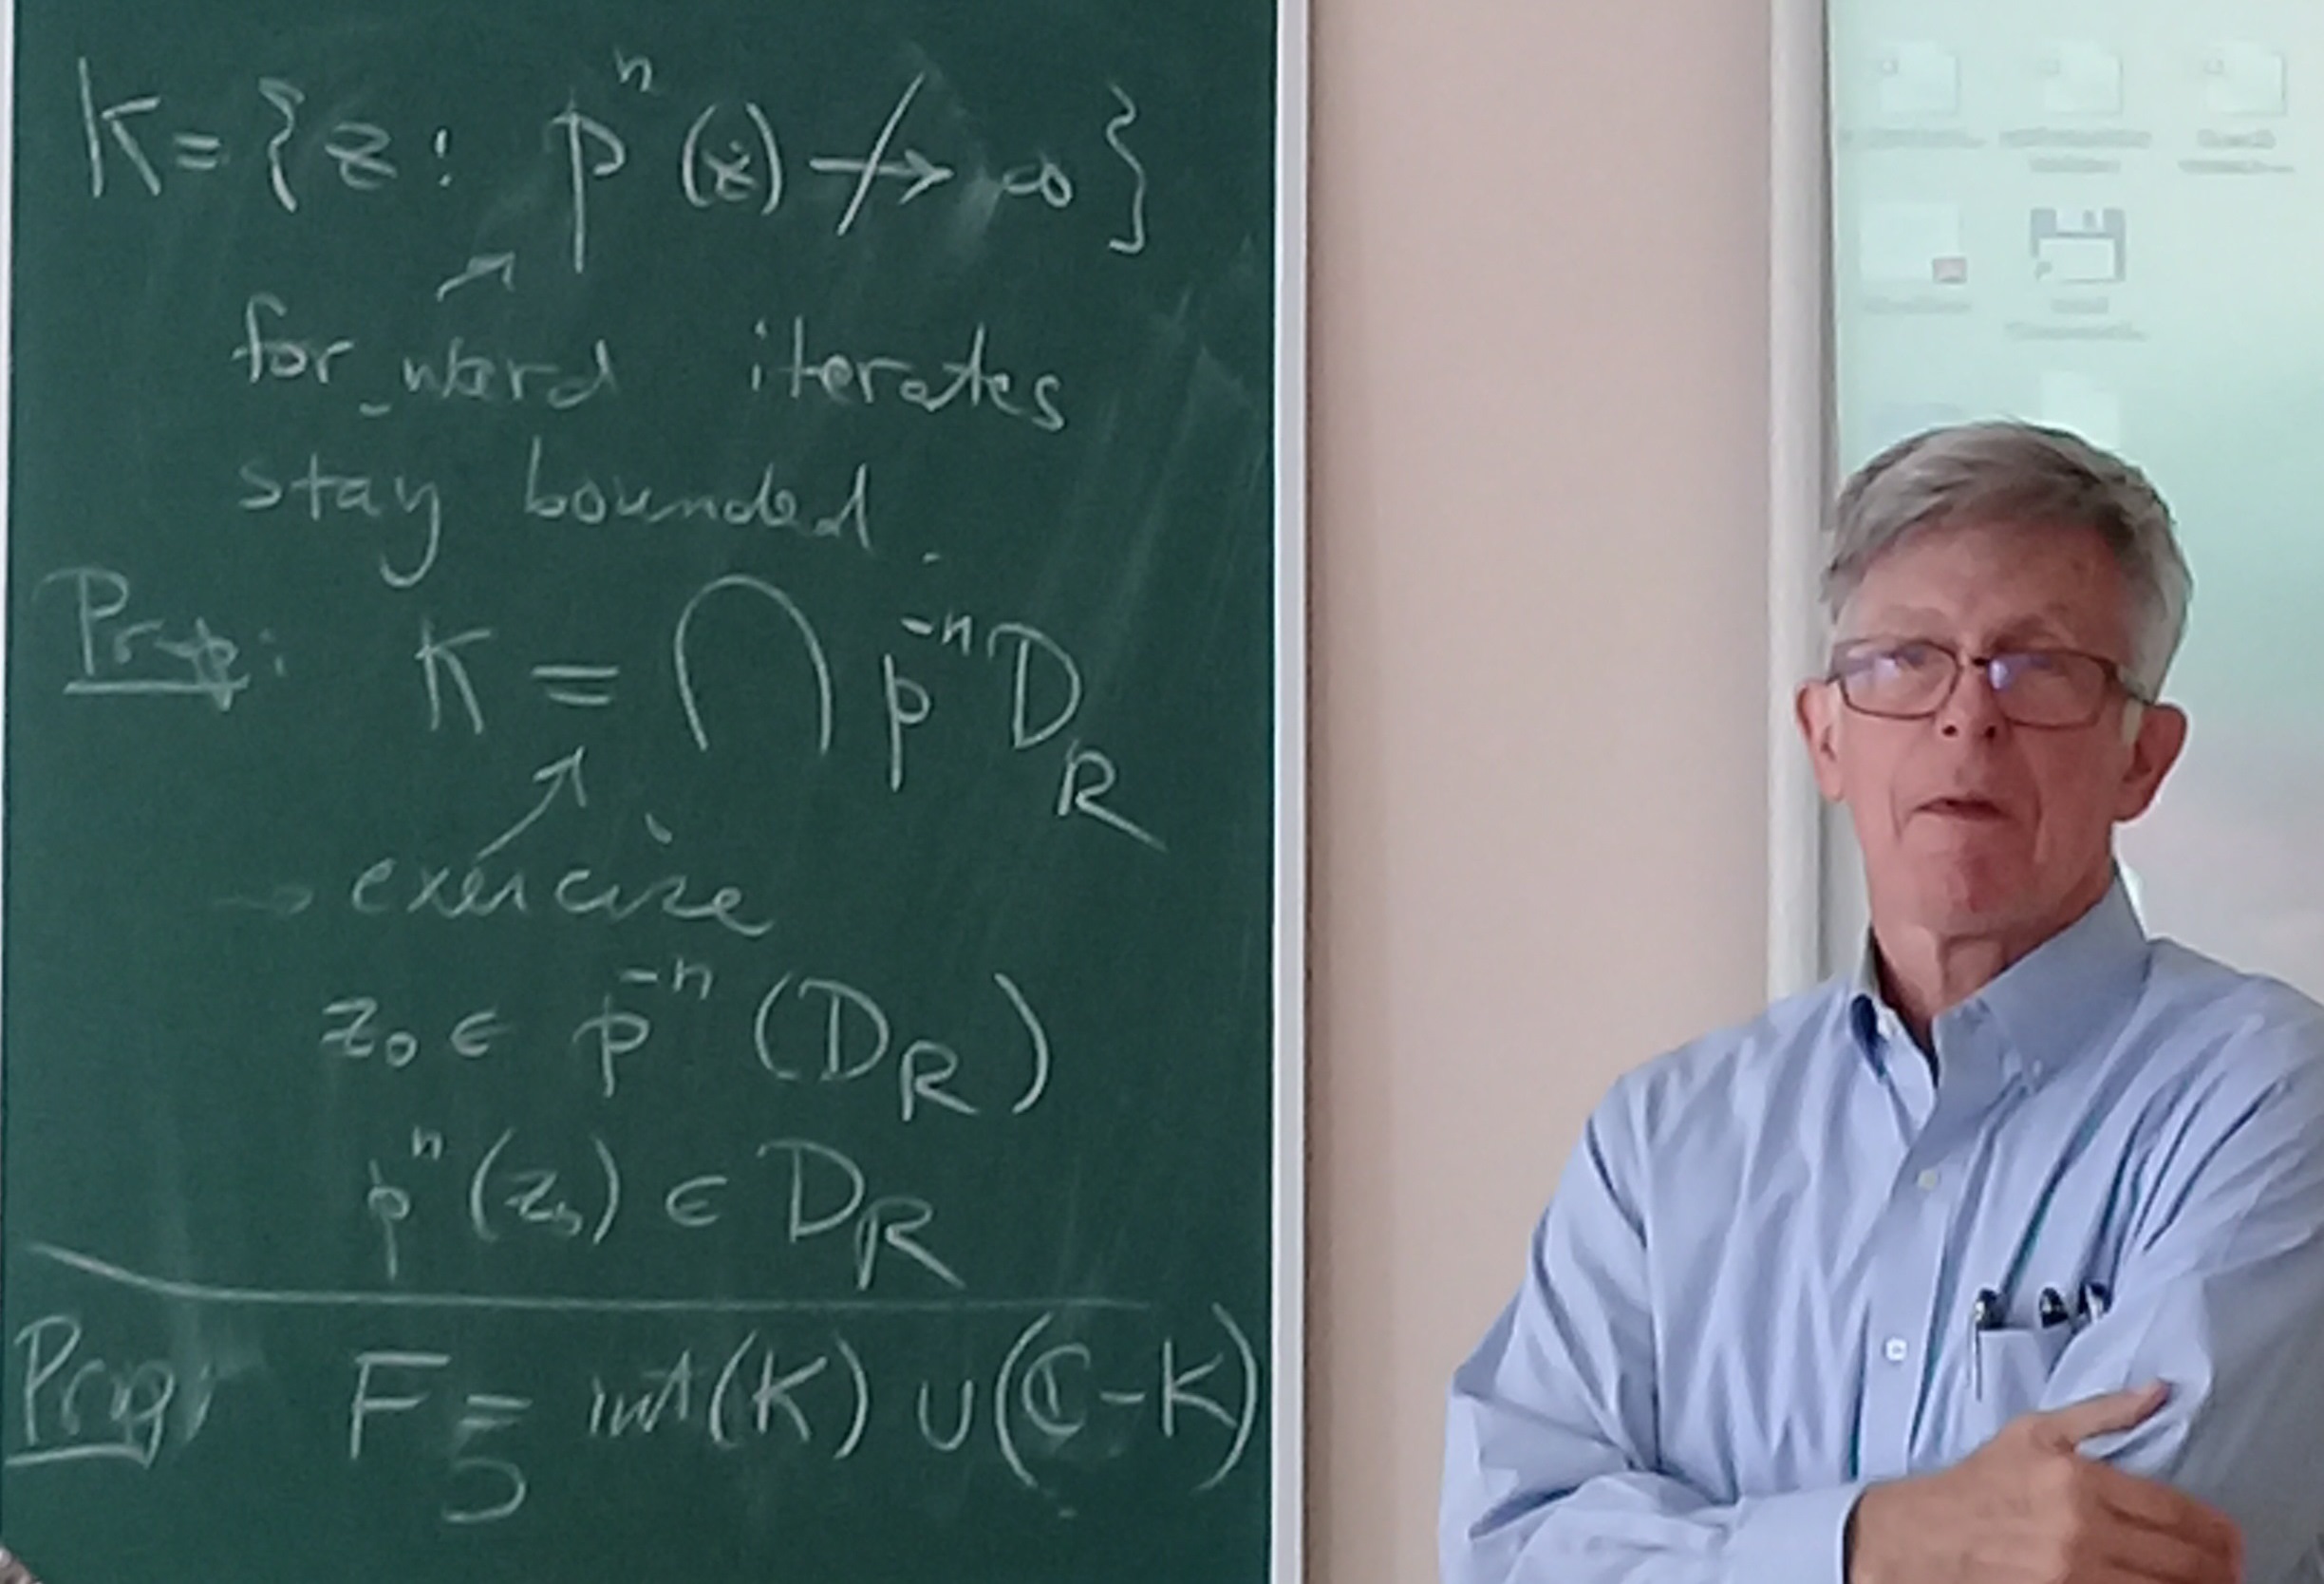 K = {z : pⁿ(z) ↛ ∞}
↗
forward iterates
stay bounded.
Prop: K = ⋂ p⁻ⁿ D_R
→ exercise ↗
z₀ ∈ p⁻ⁿ (D_R)
pⁿ(z₀) ∈ D_R
Prop F = int(K) ∪ (ℂ - K)